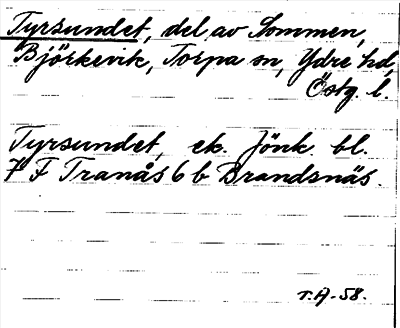 Tyrsundet, del av Sommen,
Björkevik, Torpa sn, Ydre hd,
Östg. l.
Tyrsundet, ek. Jönk. bl.
7 F Tranås 6 b Brandsnäs.
T.A-58.